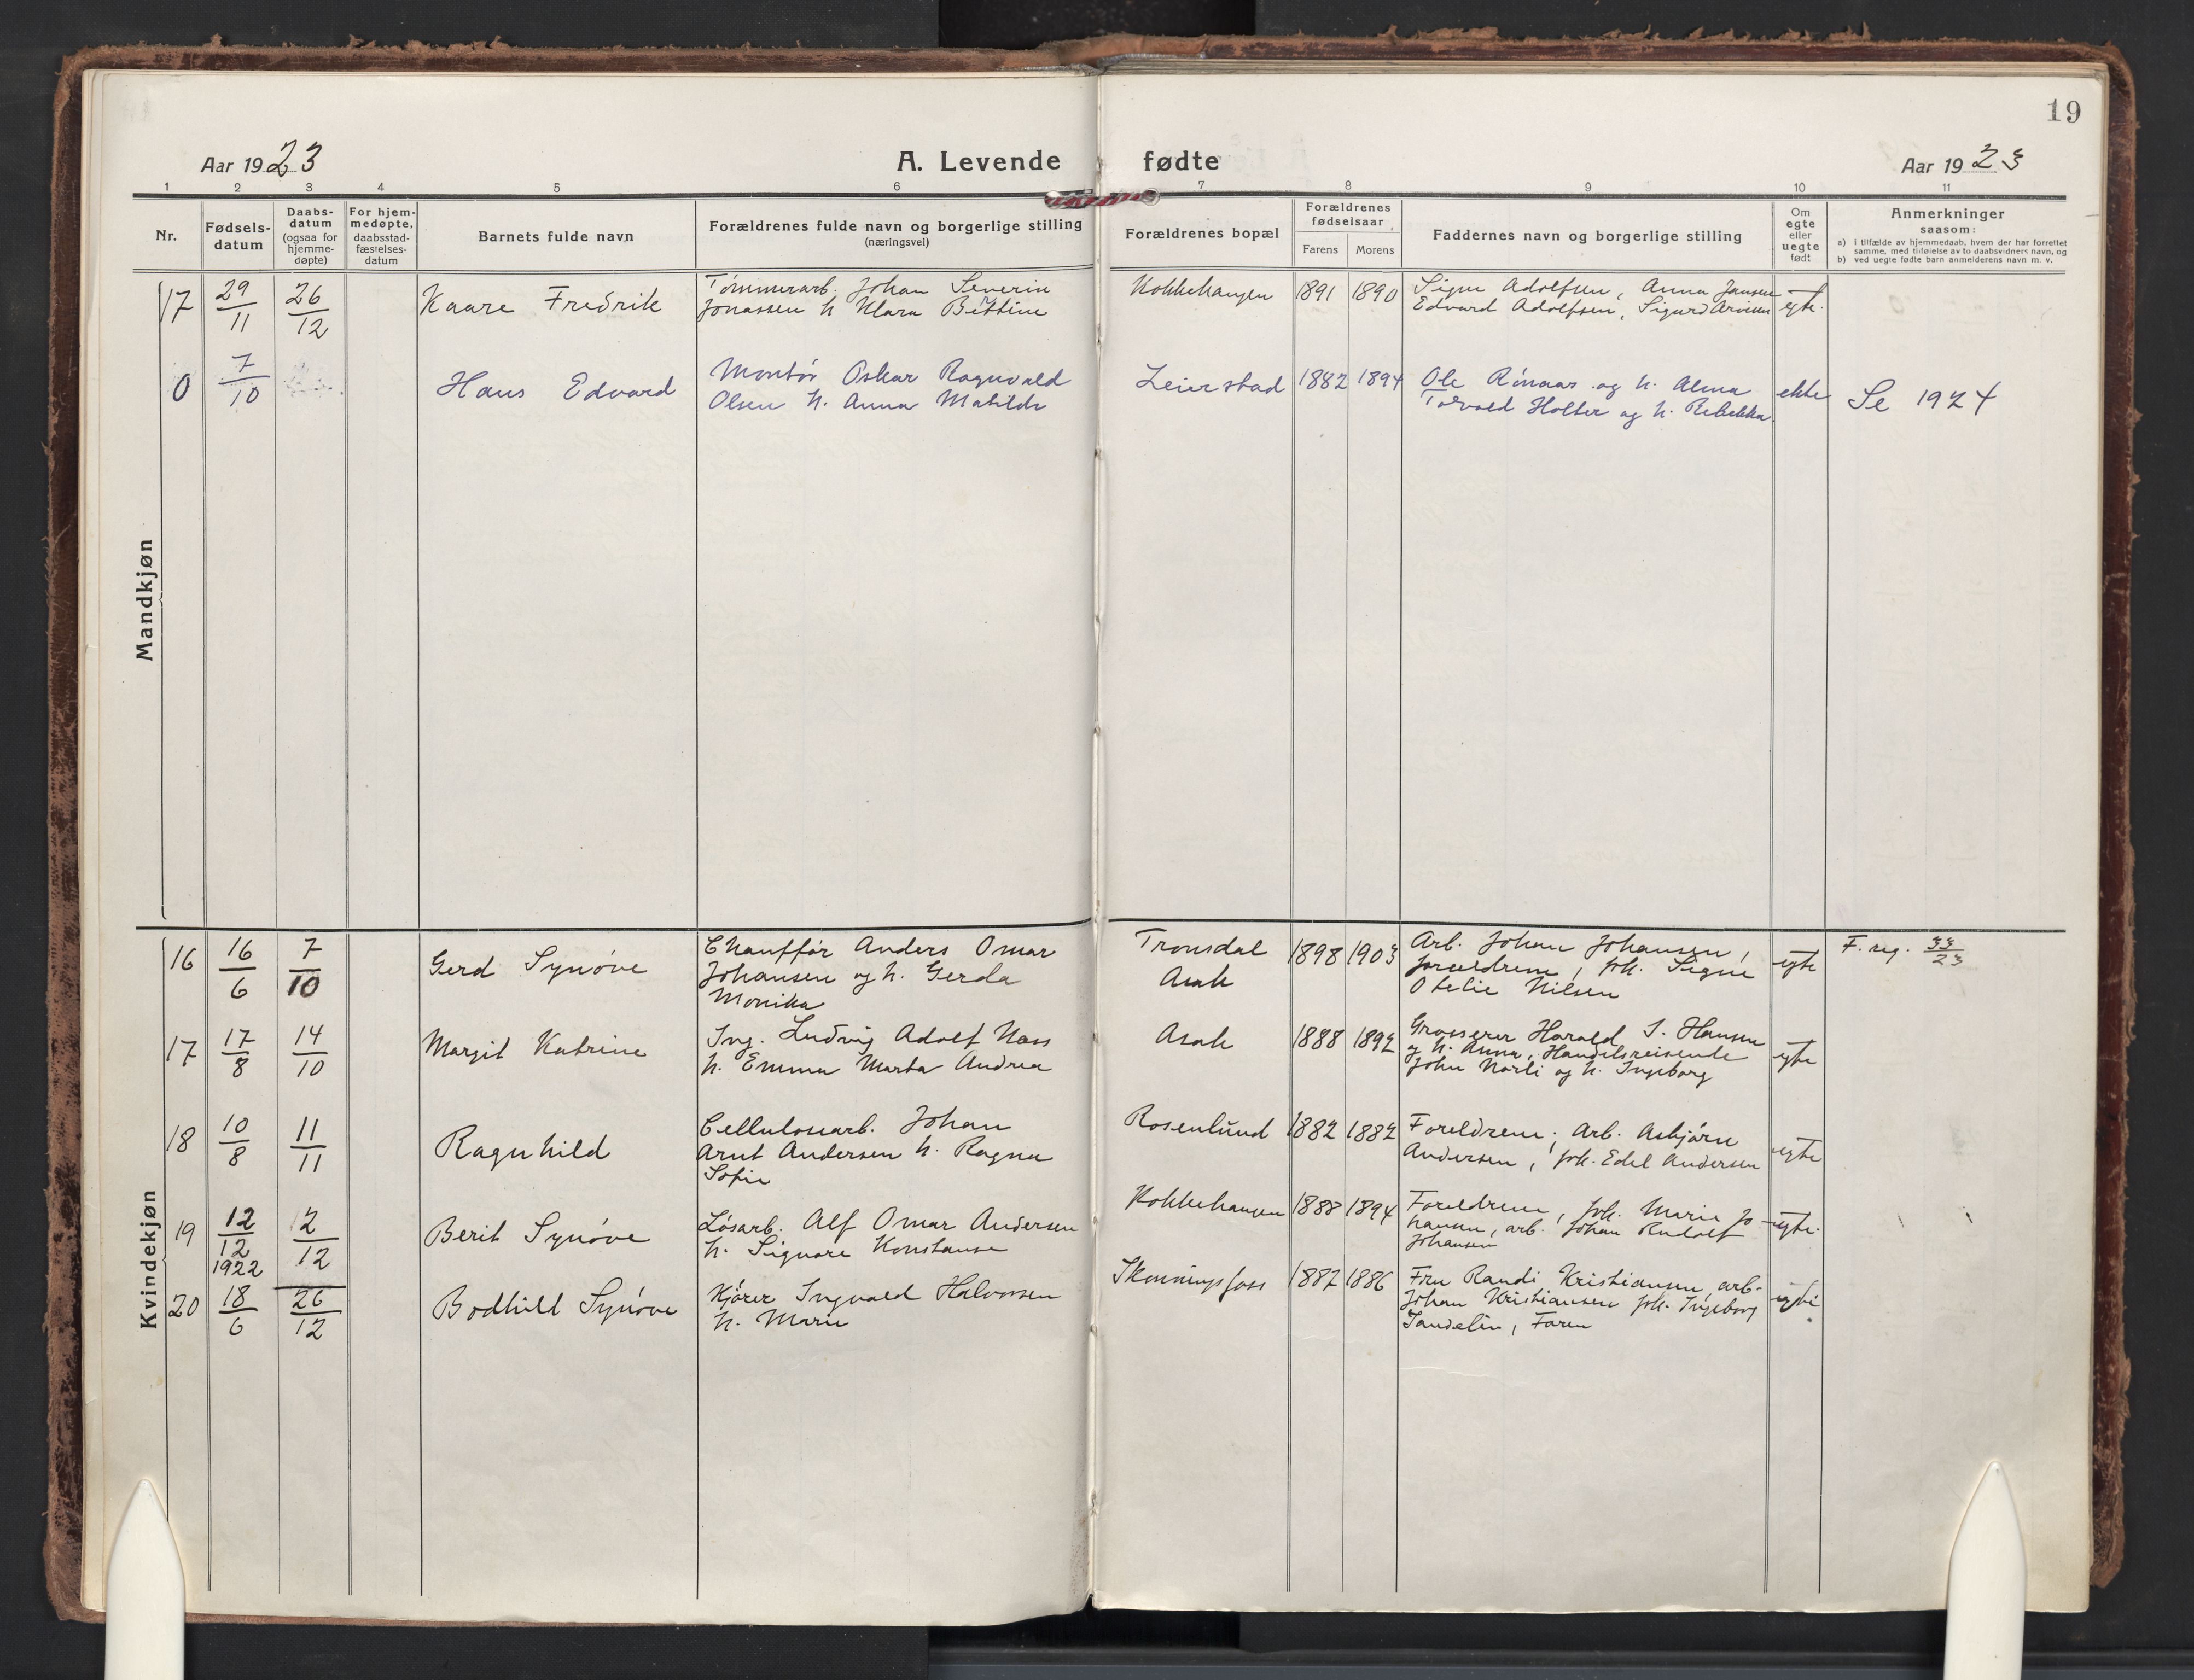 19
Aar 1923
A. Levende fødte
Aar 1923
1 2 3 4 5 6 7 8 9 10 11
Nr.
Fødsels-
datum
Daabs-
datum
(ogsaa for
hjemme-
døpte)
For hjem-
medøpte,
daabsstad-
fæstelses-
datum
Barnets fulde navn
Forældrenes fulde navn og borgerlige stilling
(næringsvei)
Forældrenes bopæl
Forældrenes
fødselsaar
Farens Morens
Faddernes navn og borgerlige stilling
Om
egte
eller
uegte
født
Anmerkninger
saasom:
a) i tilfælde av hjemmedaab, hvem der har forrettet
samme, med tilføielse av to daabsvidners navn, og
b) ved uegte fødte barn anmelderens navn m. v.
Mandkjøn
17 29/11 26/12 Kaare Fredrik
Tømmerarb. Johan Severin
Jonassen h Klara Bettine
Kokkehaugen 1891 1890
Signe Adolfsen, Anna Jansen
Edvard Adolfsen, Sigurd Arvesen
egte.
0 7/10 Hans Edvard
Montør Oskar Ragnvald
Olsen h. Anna Matilde
Leierstad 1882 1894
Ole Rönaas og h. Alma
Torvald Holter og h. Rebekka.
ekte
Se 1924
Kvindekjøn
16 16/6 7/10 Gerd Synöve
Chauffør Anders Omar
Johansen og h. Gerda
Monika
Tronsdal
Asak
1898 1903
Arb. Johan Johansen,
foreldrene, frk. Signe
Otelie Nilsen
egte
F. reg. 33/23
17 17/8 14/10 Margit Katrine
Ing. Ludvig Adolf Næss
h. Emma Marta Andrea
Asak 1888 1892
Grosserer Harald S. Hansen
og h. Anna, Handelsreisende
John Nørli og h. Ingeborg
egte
18 10/8 11/11 Ragnhild
Cellulosearb. Johan
Arnt Andersen h. Ragna
Sofie
Rosenlund 1882 1882
Foreldrene, Arb. Asbjørn
Andersen, frk. Edel Andersen
egte
19 12/12 1922 2/12 Berit Synöve
Løsarb. Alf Omar Andersen
h. Signore Konstanse
Kokkehaugen 1888 1894
Foreldrene, frk. Marie Jo
hansen, arb. Johan Rudolf
Johansen
egte.
20 18/6 26/12 Bodhild Synöve
Kjører Ingvald Halvorsen
h. Marie
Skonningsfoss 1882 1886
Fru Randi Kristiansen, arb.
Johan Kristiansen frk. Ingeborg
Sandelin, Faren
egte